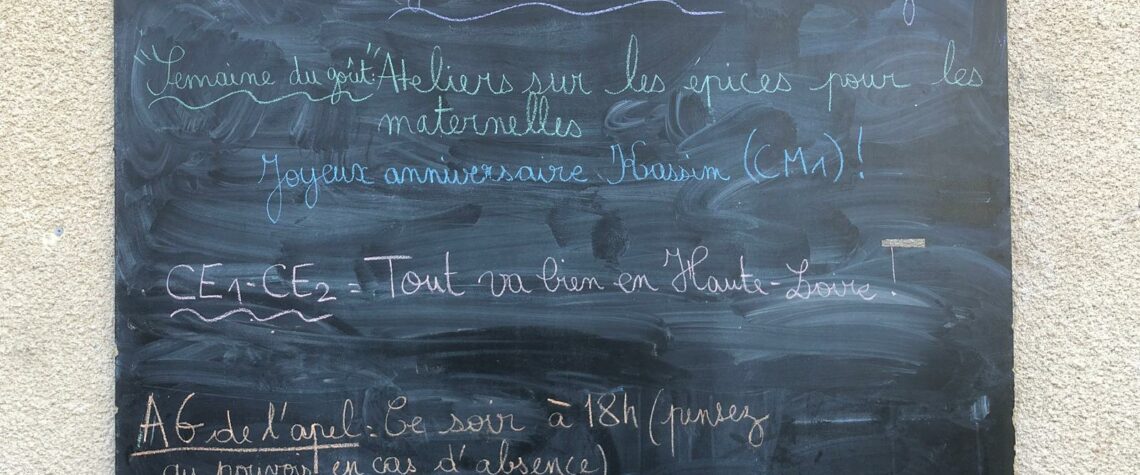 "Semaine du goût": Ateliers sur les épices pour les
maternelles
Joyeux anniversaire Kassim (CM1)!
CE1-CE2 = Tout va bien en Haute-Loire!
AG de l'apel = Ce soir à 18h (pensez
au pouvoir en cas d'absence)